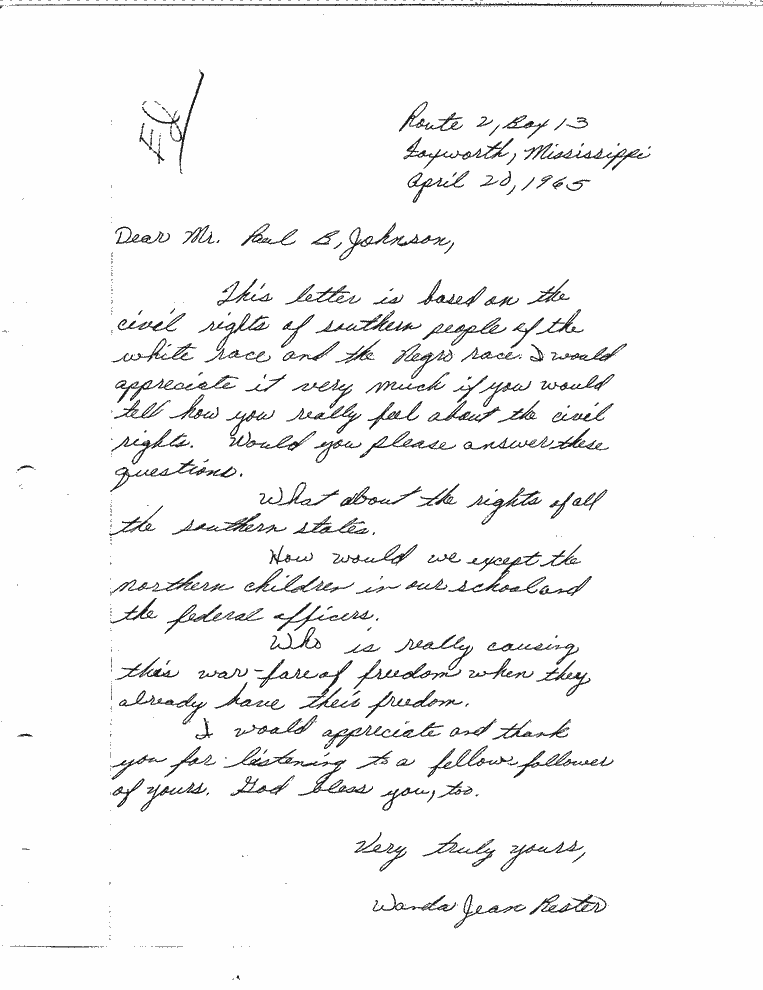 Route 2, Box 13
Foxworth, Mississippi
April 20, 1965
Dear Mr. Paul B, Johnson,
This letter is based on the
civil rights of southern people of the
white race and the Negro race. I would
appreciate it very much if you would
tell how you really feel about the civil
rights. Would you please answer these
questions.
What about the rights of all
the southern states.
How would we except the
northern children in our school and
the federal officers.
Who is really causing
this war-fare of freedom when they
already have their freedom.
I would appreciate and thank
you for listening to a fellow follower
of yours. God bless you, too.
Very truly yours,
Wanda Jean Rester